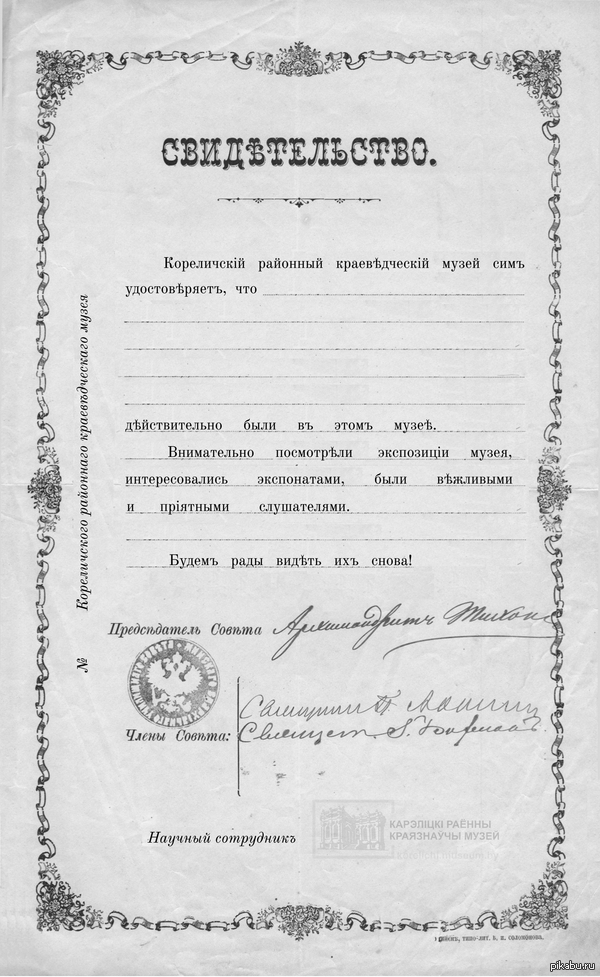 СВИДѢТЕЛЬСТВО.
Кореличскій районный краевѣдческій музей симъ
удостовѣряетъ, что
дѣйствительно были въ этомъ музеѣ.
Внимательно посмотрѣли экспозиціи музея,
интересовались экспонатами, были вѣжливыми
и пріятными слушателями.
Будемъ рады видѣть ихъ снова!
№ Кореличского районнаго краевѣдческаго музея
Предсѣдатель Совѣта Архимандритъ Тихонъ
Члены Совѣта:
КАРЭЛІЦКІ РАЁННЫ
КРАЯЗНАЎЧЫ МУЗЕЙ
Научный сотрудникъ
pikabu.ru